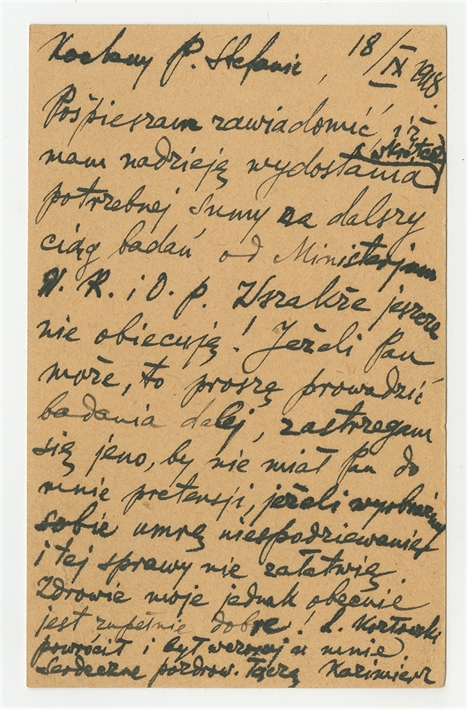 Kochany P. Stefanie, 18/IX 1918.
Pośpieszam zawiadomić, iż
mam nadzieję wydostania (wkrótce)
potrzebnej sumy na dalszy
ciąg badań od Ministerjum
W. R. i O. P. Wszakże jeszcze
nie obiecują! Jeżeli Pan
może, to proszę prowadzić
badania dalej, zastrzegam
się jeno, by nie miał Pan do
mnie pretensji, jeżeli wyobraźmy
sobie umrę niespodziewanie
i tej sprawy nie załatwię.
Zdrowie moje jednak obecnie
jest zupełnie dobre! L. Kozłowski
powrócił i był wczoraj u mnie
Serdeczne pozdrow. Łączą Kazimierz